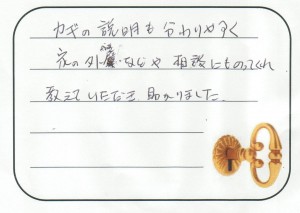 カギの説明も分わりやすく
家の外などや相談にものってくれ
教えていただき助かりました。